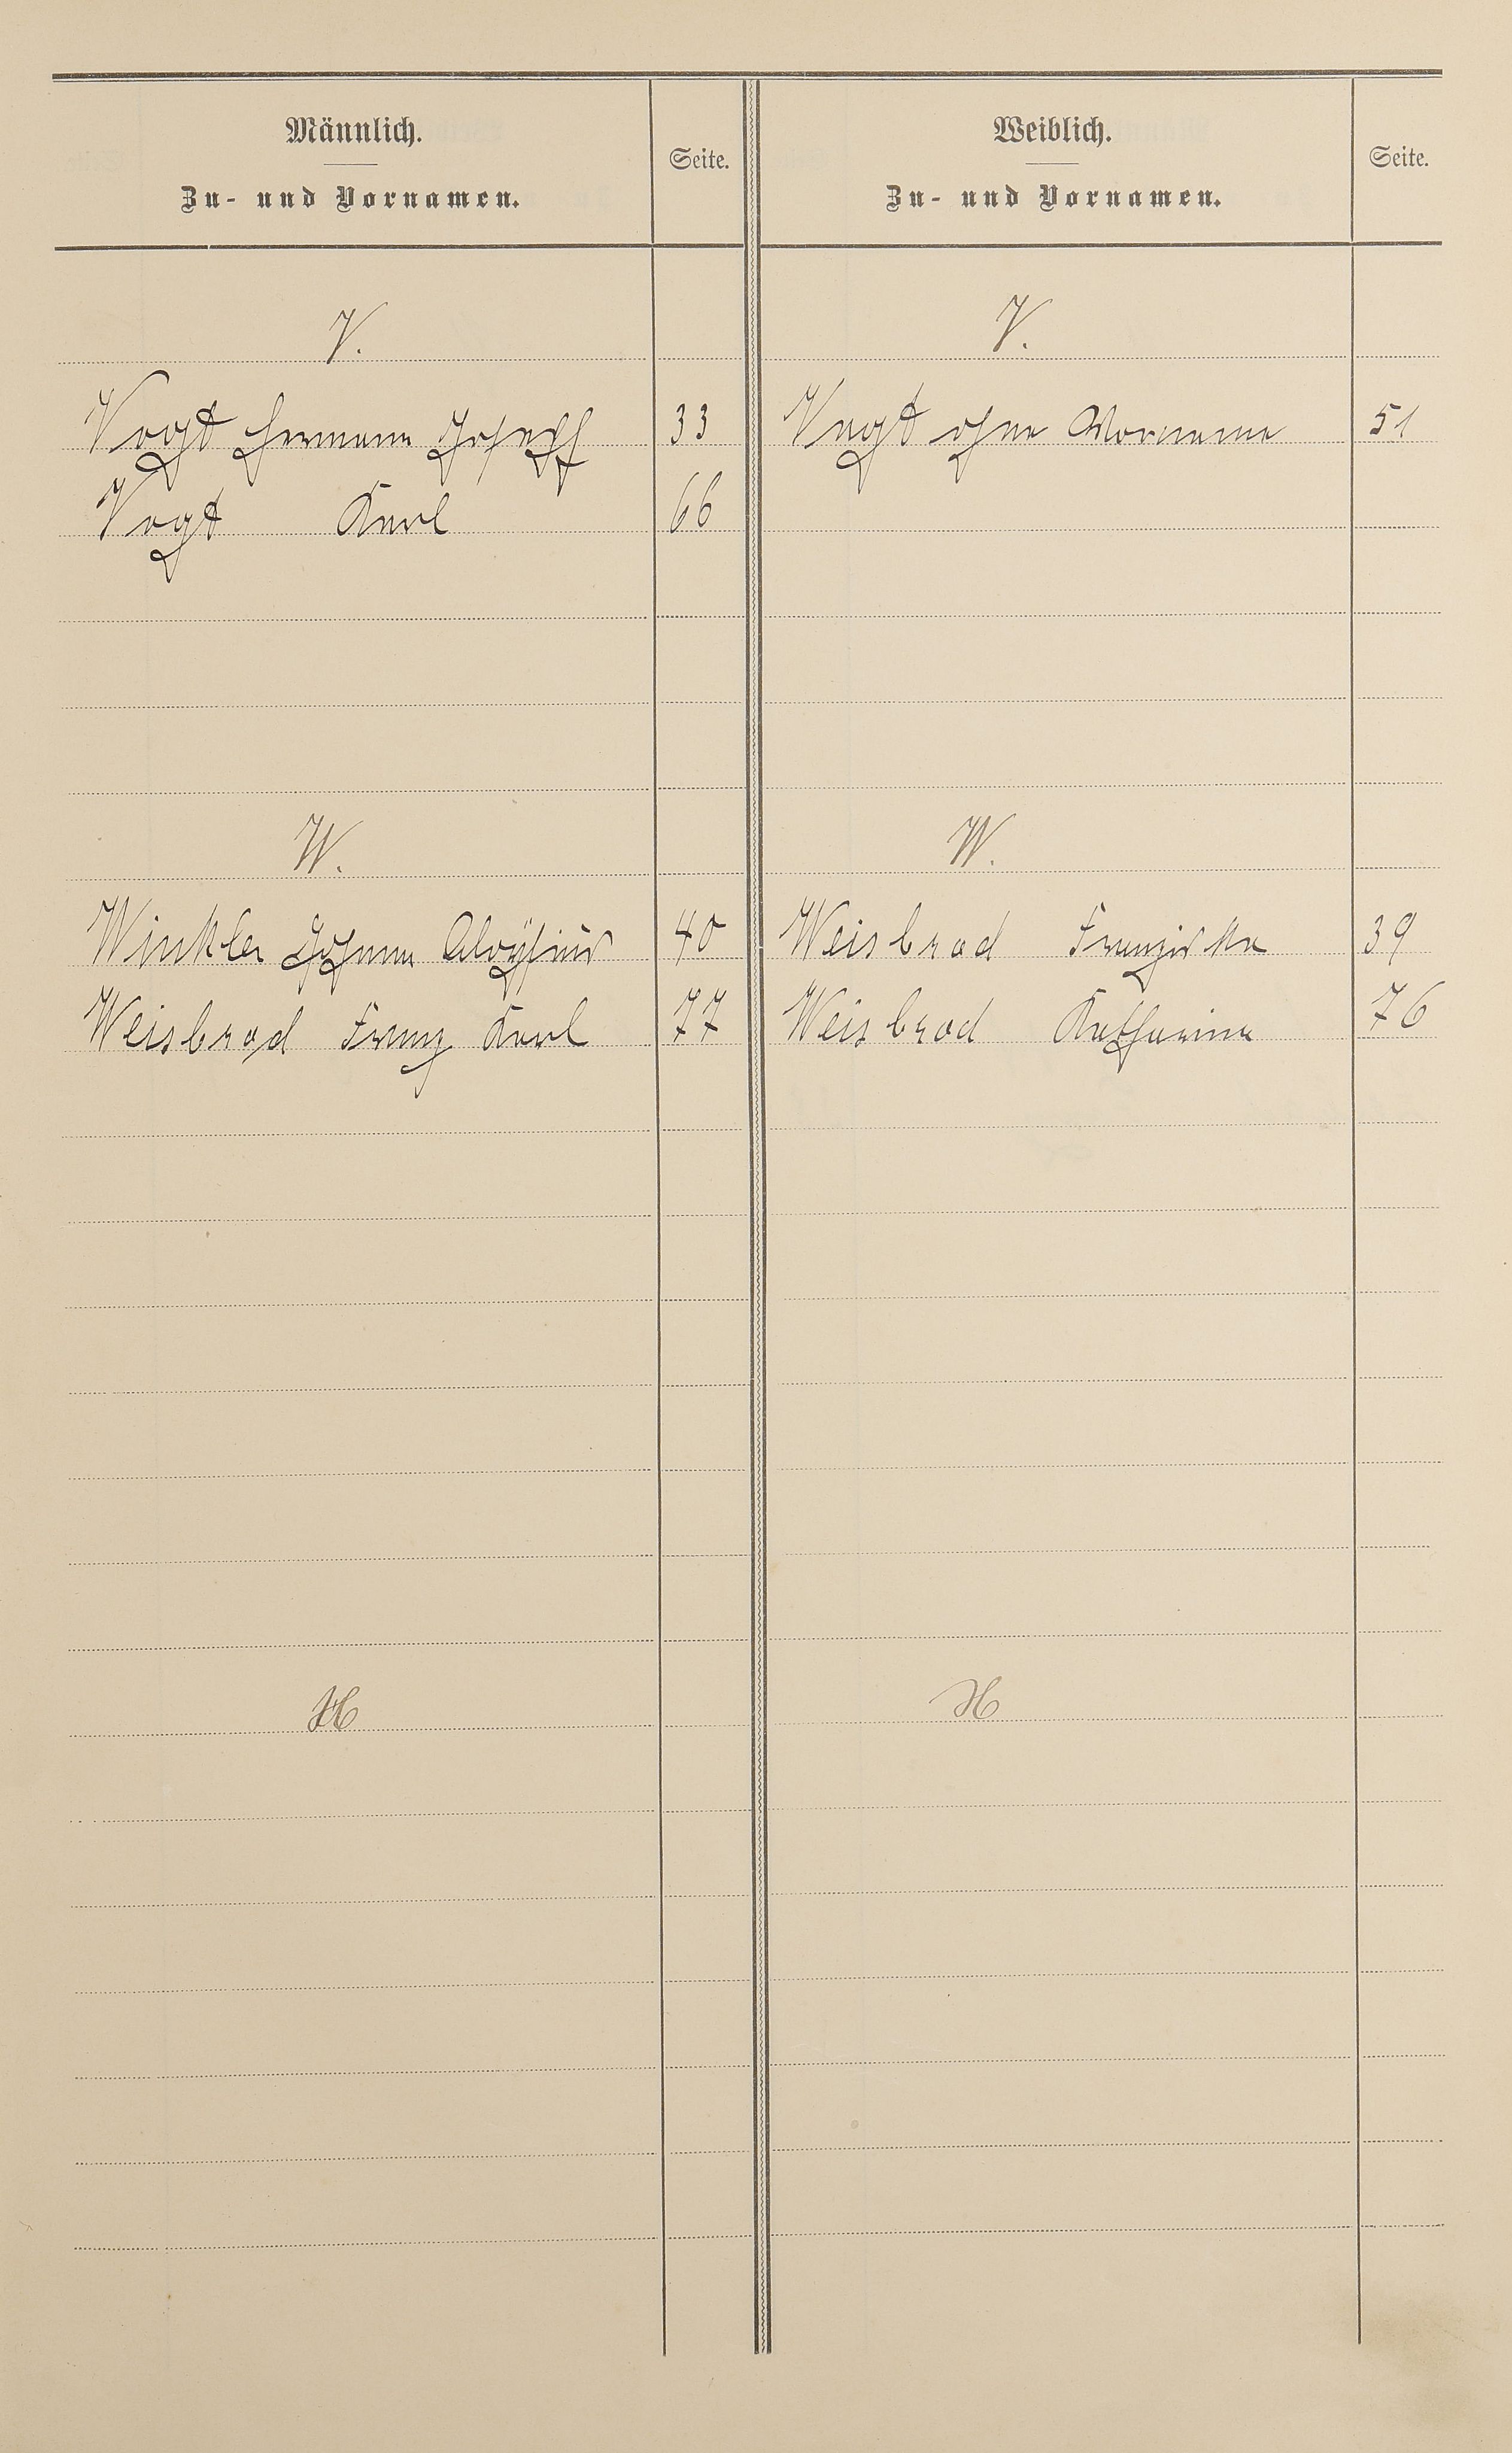 Männlich.
Zu- und Vornamen.
Seite.
Weiblich.
Zu- und Vornamen.
Seite.
V.
V.
Vogt Hermann Joseph 33 Vogt ohne Vorname 51
Vogt Karl 66
W.
W.
Winkler Johann Aloÿsius 40 Weisbrod Franziska 39
Weisbrod Franz Karl 77 Weisbrod Katharina 76